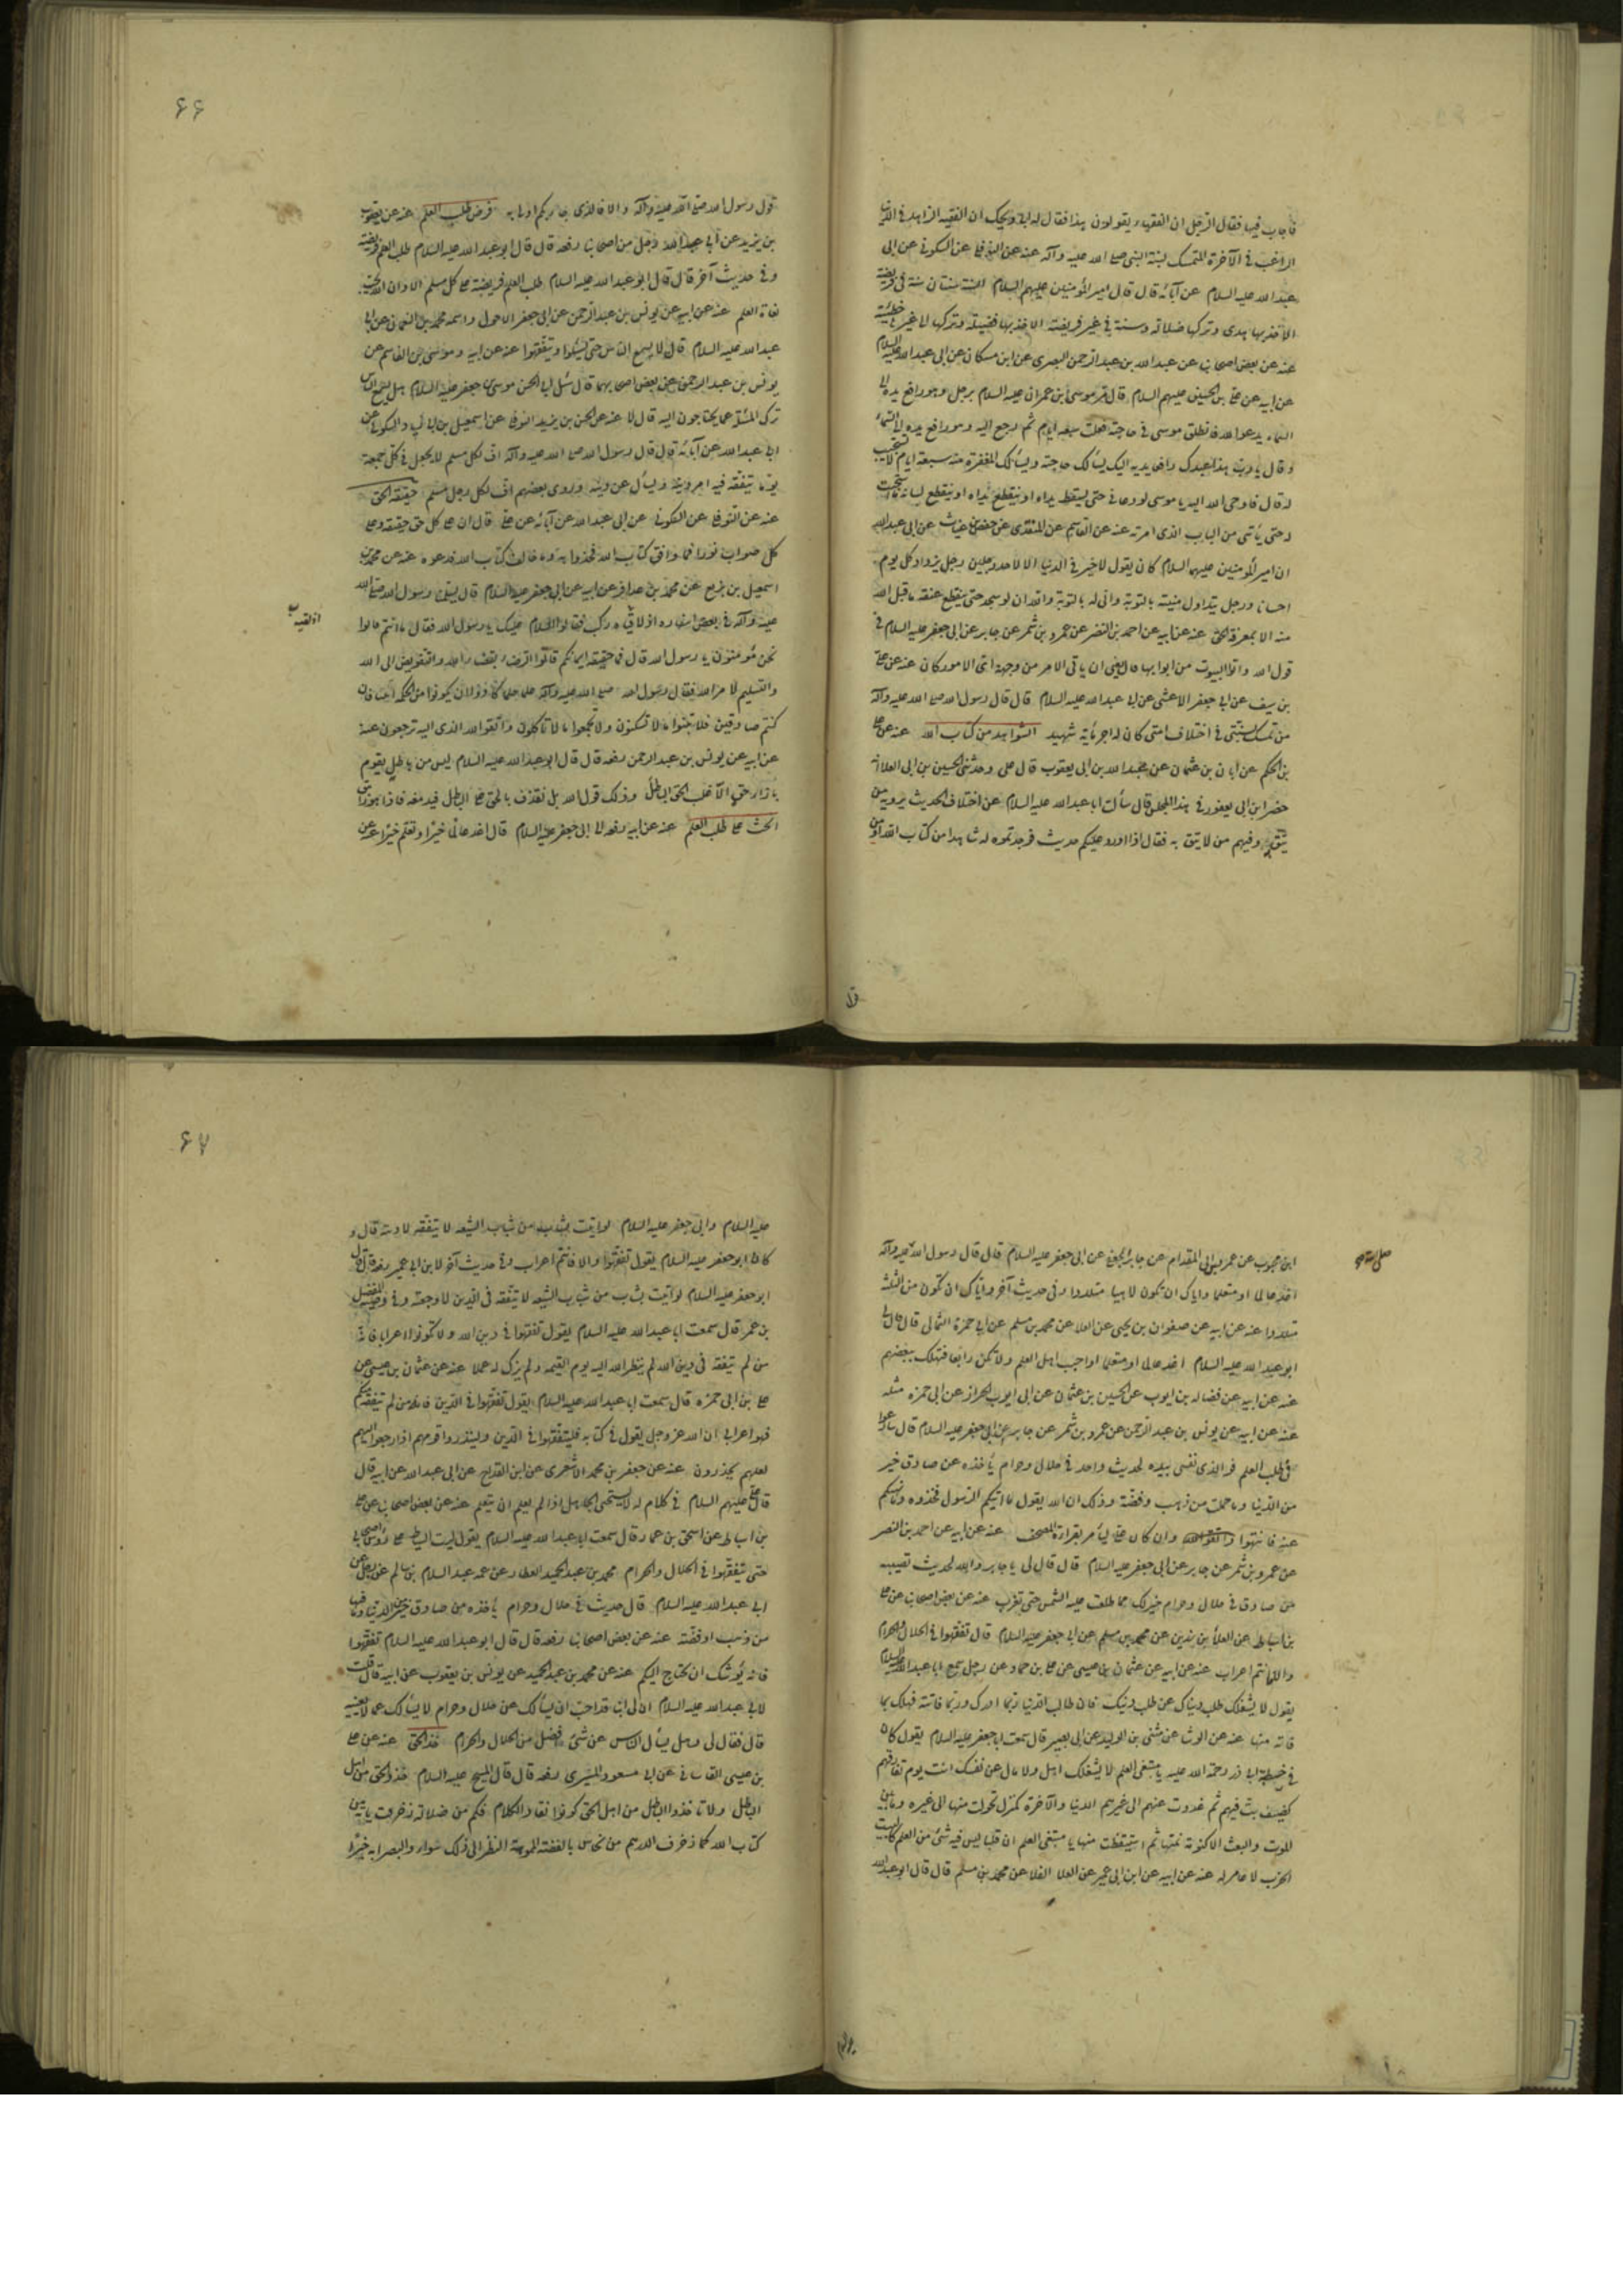 فاجاب فيها فقال الرجل ان الفقهاء يقولون هذا فقال له ابى ويحك ان الفقيه الزاهد فى الدنيا
الراغب فى الآخرة المتمسك بسنة النبى صلى الله عليه وآله عنه عن النوفلى عن السكونى عن ابى
عبد الله عليه السلام عن آبائه قال قال امير المؤمنين عليهم السلام السنة سنتان سنة فى فريضة
الاخذ بها هدى وتركها ضلالة وسنة فى غير فريضة الاخذ بها فضيلة وتركها لا غير خطيئة
عنه عن بعض اصحابنا عن عبد الله بن عبد الرحمن البصرى عن ابن مسكان عن ابى عبد الله عليه السلام
عن ابيه عن على بن الحسين عليهم السلام قال مر موسى بن عمران عليه السلام برجل وهو رافع يده الى
السماء يدعو الله فانطلق موسى فى حاجته فغاب سبعة ايام ثم رجع اليه وهو رافع يده الى السماء
وقال يا رب هذا عبدك رافع يديه اليك يسألك حاجته ويسألك المغفرة منذ سبعة ايام لا تستجيب
له قال فاوحى الله اليه يا موسى لو دعانى حتى يسقط يداه او ينقطع يداه او ينقطع لسانه ما استجبت
له حتى يأتنى من الباب الذى امرته عنه عن القاسم عن المنقرى عن حفص بن غياث عن ابى عبد الله
ان امير المؤمنين عليهما السلام كان يقول لا خير فى الدنيا الا لاحد رجلين رجل يزداد كل يوم
احسانا ورجل يتداول منيته بالتوبة وانى له بالتوبة والله ان لو سجد حتى ينقطع عنقه ما قبل الله
منه الا بمعرفة الحق عنه عن ابيه عن احمد بن النضر عن عمرو بن شمر عن جابر عن ابى جعفر عليه السلام فى
قول الله واتوا البيوت من ابوابها قال يعنى ان ياتى الامر من وجهه اى الامور كان عنه عن على
بن سيف عن ابى جعفر الاعشى عن ابى عبد الله عليه السلام قال قال رسول الله صلى الله عليه وآله
من تمسك بسنتى فى اختلاف امتى كان له اجر مأية شهيد الشواهد من كتاب الله عنه عن على
بن الحكم عن ابان بن عثمان عن عبد الله بن ابى يعقوب قال على وحدثنى الحسين بن ابى العلا انه
حضر ابن ابى يعفور فى هذا المجلس قال سألت ابا عبد الله عليه السلام عن اختلاف الحديث يرويه من
يثق به وفيهم من لا يثق به فقال اذا اورد عليكم حديث فوجدتموه له شاهدا من كتاب الله او من
قول
۶۶
قول رسول الله صلى الله عليه وآله والا فالذى جاءكم اولى به فرض طلب العلم عنه عن يعقوب
بن يزيد عن ابى عبد الله رجل من اصحابنا رفعه قال قال ابو عبد الله عليه السلام طلب العلم فريضة
وفى حديث آخر قال قال ابو عبد الله عليه السلام طلب العلم فريضة على كل مسلم الا وان الله يحب
بغاة العلم عنه عن ابيه عن يونس بن عبد الرحمن عن ابى جعفر الاحول واسمه محمد بن النعمان عن ابى
عبد الله عليه السلام قال لا يسع الناس حتى يسئلوا ويتفقهوا عنه عن ابيه وموسى بن القاسم عن
يونس بن عبد الرحمن عن بعض اصحابهما قال سئل ابو الحسن موسى بن جعفر عليه السلام هل يسع الناس
ترك المسئلة عما يحتاجون اليه قال لا عنه عن الحسن بن يزيد النوفلى عن اسمعيل بن ابى زياد السكونى عن
ابى عبد الله عن آبائه قال قال رسول الله صلى الله عليه وآله اف لكل مسلم لا يجعل فى كل جمعة
يوما يتفقه فيه امر دينه ويسأل عن دينه وروى بعضهم اف لكل رجل مسلم حقيقة الحق
عنه عن النوفلى عن السكونى عن ابى عبد الله عن آبائه عن على قال ان على كل حق حقيقة وعلى
كل صواب نورا فما وافق كتاب الله فخذوا به وما خالف كتاب الله فدعوه عنه عن محمد بن
اسمعيل بن بزيع عن محمد بن عذافر عن ابيه عن ابى جعفر عليه السلام قال بينا رسول الله صلى الله
عليه وآله فى بعض اسفاره اذ لاقى ه ركب فقالوا السلام عليك يا رسول الله فقال ما انتم قالوا
اذ لقيه
نحن مؤمنون يا رسول الله قال فما حقيقة ايمانكم قالوا الرضا بقضاء الله والتفويض الى الله
والتسليم لامر الله فقال رسول الله صلى الله عليه وآله علماء حكماء كادوا ان يكونوا من الحكمة انبياء فان
كنتم صادقين فلا تبنوا ما لا تسكنون ولا تجمعوا ما لا تأكلون واتقوا الله الذى اليه ترجعون عنه
عن ابيه عن يونس بن عبد الرحمن رفعه قال قال ابو عبد الله عليه السلام ليس من باطل يقوم
بازاء حق الا غلب الحق الباطل وذلك قول الله بل نقذف بالحق على الباطل فيدمغه فاذا هو زاهق
الحث على طلب العلم عنه عن ابيه رفعه الى ابى جعفر عليه السلام قال اغد عالما خيرا وتعلم خيرا عنه عن
ابن محبوب عن عمرو بن ابى المقدام عن جابر الجعفى عن ابى جعفر عليه السلام قال قال رسول الله عليه وآله
صلى الله
اغد عالما او متعلما واياك ان تكون لاهيا متلذذا وفى حديث آخر واياك ان تكون من الثلثة
متلذذوا عنه عن ابيه عن صفوان بن يحيى عن العلا عن محمد بن مسلم عن ابى حمزة الثمالى قال قال لى
ابو عبد الله عليه السلام اغد عالما او متعلما او احب اهل العلم ولا تكن رابعا فتهلك ببغضهم
عنه عن ابيه عن فضالة بن ايوب عن الحسين بن عثمان عن ابى ايوب الخزاز عن ابى حمزة مثله
عنه عن ابيه عن يونس بن عبد الرحمن عن عمرو بن شمر عن جابر عن ابى جعفر عليه السلام قال سارعوا
فى طلب العلم فو الذى نفسى بيده لحديث واحد فى حلال وحرام يأخذه عن صادق خير
من الدنيا وما حملت من ذهب وفضة وذلك ان الله يقول ما اتيكم الرسول فخذوه وما نهيكم
عنه فانتهوا وان كان على ليأمر بقراءة المصحف عنه عن ابيه عن احمد بن النضر
عن عمرو بن شمر عن جابر عن ابى جعفر عليه السلام قال قال لى يا جابر والله لحديث تصيبه
من صادق فى حلال وحرام خير لك مما طلعت عليه الشمس حتى تغرب عنه عن بعض اصحابنا عن على
بن اسباط عن العلاء بن رزين عن محمد بن مسلم عن ابى جعفر عليه السلام قال تفقهوا فى الحلال والحرام
والا فانتم اعراب عنه عن ابيه عن عثمان بن عيسى عن على بن حماد عن رجل سمع ابا عبد الله عليه السلام
يقول لا يشغلك طلب دنياك عن طلب دينك فان طالب الدنيا ربما ادرك وربما فاتته فهلك بما
فاته منها عنه عن الوشا عن مثنى بن الوليد عن ابى بصير قال سمعت ابا جعفر عليه السلام يقول كان
فى خطبة ابى ذر رحمة الله عليه يا مبتغى العلم لا يشغلك اهل ولا مال عن نفسك انت يوم تفارقهم
كضيف بت فيهم ثم غدوت عنهم الى غيرهم الدنيا والآخرة كمنزل تحولت منها الى غيره وما بين
الموت والبعث الا كنومة نمتها ثم استيقظت منها يا مبتغى العلم ان قلبا ليس فيه شئ من العلم كالبيت
الخرب لا عامر له عنه عن ابيه عن ابن ابى عمير عن العلا القلا عن محمد بن مسلم قال قال ابو عبد الله
۶۷
عليه السلام وابى جعفر عليه السلام لو اتيت بشاب من شباب الشيعة لا يتفقه لادبته قال و
كان ابو جعفر عليه السلام يقول تفقهوا والا فانتم اعراب وفى حديث آخر لابن ابى عمير رفعه قال قال
ابو جعفر عليه السلام لو اتيت بشاب من شباب الشيعة لا يتفقه فى الدين لاوجعته وفى وصية المفضل
بن عمر قال سمعت ابا عبد الله عليه السلام يقول تفقهوا فى دين الله ولا تكونوا اعرابا فانه
من لم يتفقه فى دين الله لم ينظر الله اليه يوم القيمة ولم يزك له عملا عنه عن عثمان بن عيسى عن
على بن ابى حمزه قال سمعت ابا عبد الله عليه السلام يقول تفقهوا فى الدين فانه من لم يتفقه منكم
فهو اعرابى ان الله عز وجل يقول فى كتابه فليتفقهوا فى الدين ولينذروا قومهم اذا رجعوا اليهم
لعلهم يحذرون عنه عن جعفر بن محمد الاشعرى عن ابن القداح عن ابى عبد الله عن ابيه قال
قال على عليهم السلام فى كلام له لا يستحى الجاهل اذا لم يعلم ان يتعلم عنه عن بعض اصحابنا عن على
بن اسباط عن اسحق بن عمار قال سمعت ابا عبد الله عليه السلام يقول ليت السياط على رؤس اصحابى
حتى يتفقهوا فى الحلال والحرام محمد بن عبد الحميد العطار عن عمه عبد السلام بن سالم عن رجل عن
ابى عبد الله عليه السلام قال حديث فى حلال وحرام يأخذه من صادق خير من الدنيا وما فيها
من ذهب او فضة عنه عن بعض اصحابنا رفعه قال قال ابو عبد الله عليه السلام تفقهوا
فانه يوشك ان يحتاج اليكم عنه عن محمد بن عبد الحميد عن يونس بن يعقوب عن ابيه قال قلت
لابى عبد الله عليه السلام ان لى ابنا قد احب ان يسألك عن حلال وحرام لا يسألك عما لا يعنيه
قال فقال لى وهل يسأل الناس عن شئ افضل من الحلال والحرام خذ الحق عنه عن على
بن عيسى القاسانى عن ابى مسعود الميسرى رفعه قال قال المسيح عليه السلام خذوا الحق من اهل
الباطل ولا تاخذوا الباطل من اهل الحق كونوا نقاد الكلام فكم من ضلالة زخرفت باية من
كتاب الله كما زخرف الدرهم من نحاس بالفضة المموهة النظر الى ذلك سواء والبصراء به خبراء